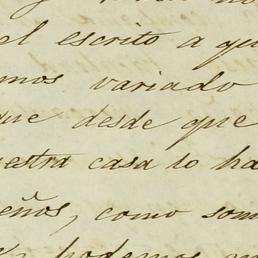 el escrito a qu
mos variado
que desde que
uestra casa lo ha
eños, como som
podemos